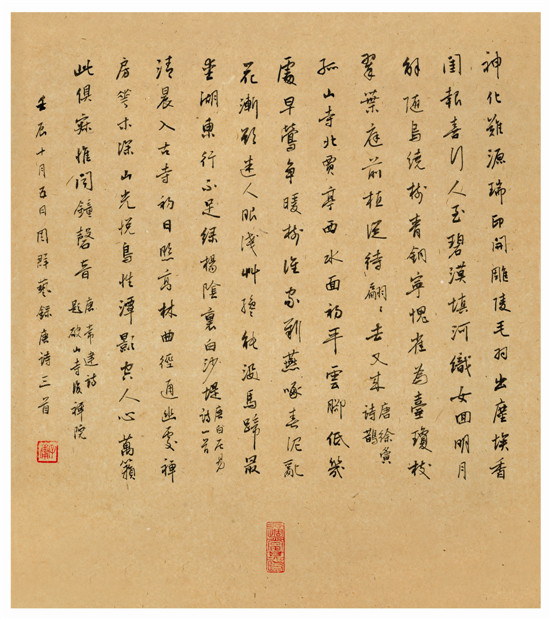 神化難源瑞印開雕陵毛羽出塵埃香
閨報喜行人至碧漢填河織女回明月
解随烏繞樹青銅寧愧雀為臺瓊枝
翠葉庭前植從待翩〻去又来
唐徐夤
詩鵲
孤山寺北賈亭西水面初平雲腳低幾
處早鶯争暖樹誰家新燕啄春泥亂
花漸欲迷人眼淺艸纔能没馬蹄最
愛湖東行不足緑楊陰裏白沙堤
唐白居易
詩一首
清晨入古寺初日照高林曲徑通幽處禪
房花木深山光悦鳥性潭影空人心萬籟
此俱寂惟聞鐘磬音
唐常建詩
題破山寺後禪院
壬辰十月五日周群藝録唐詩三首